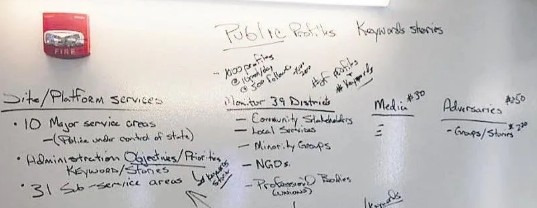 FIRE
Public Profiles Keywords stories
- 1000 profiles
# of Profiles
# keywords
Site/Platform services
• 10 Major service areas
- (Police under control of state)
• Administration Objectives/Priorities
Keywords/Stories
• 31 Sub-service areas
Monitor 39 Districts
- Community Stakeholders
- Local Services
- Minority Groups
- NGOs.
- Professional Bodies
(unions)
Media #30
Adversaries
- Groups/Stories
keywords